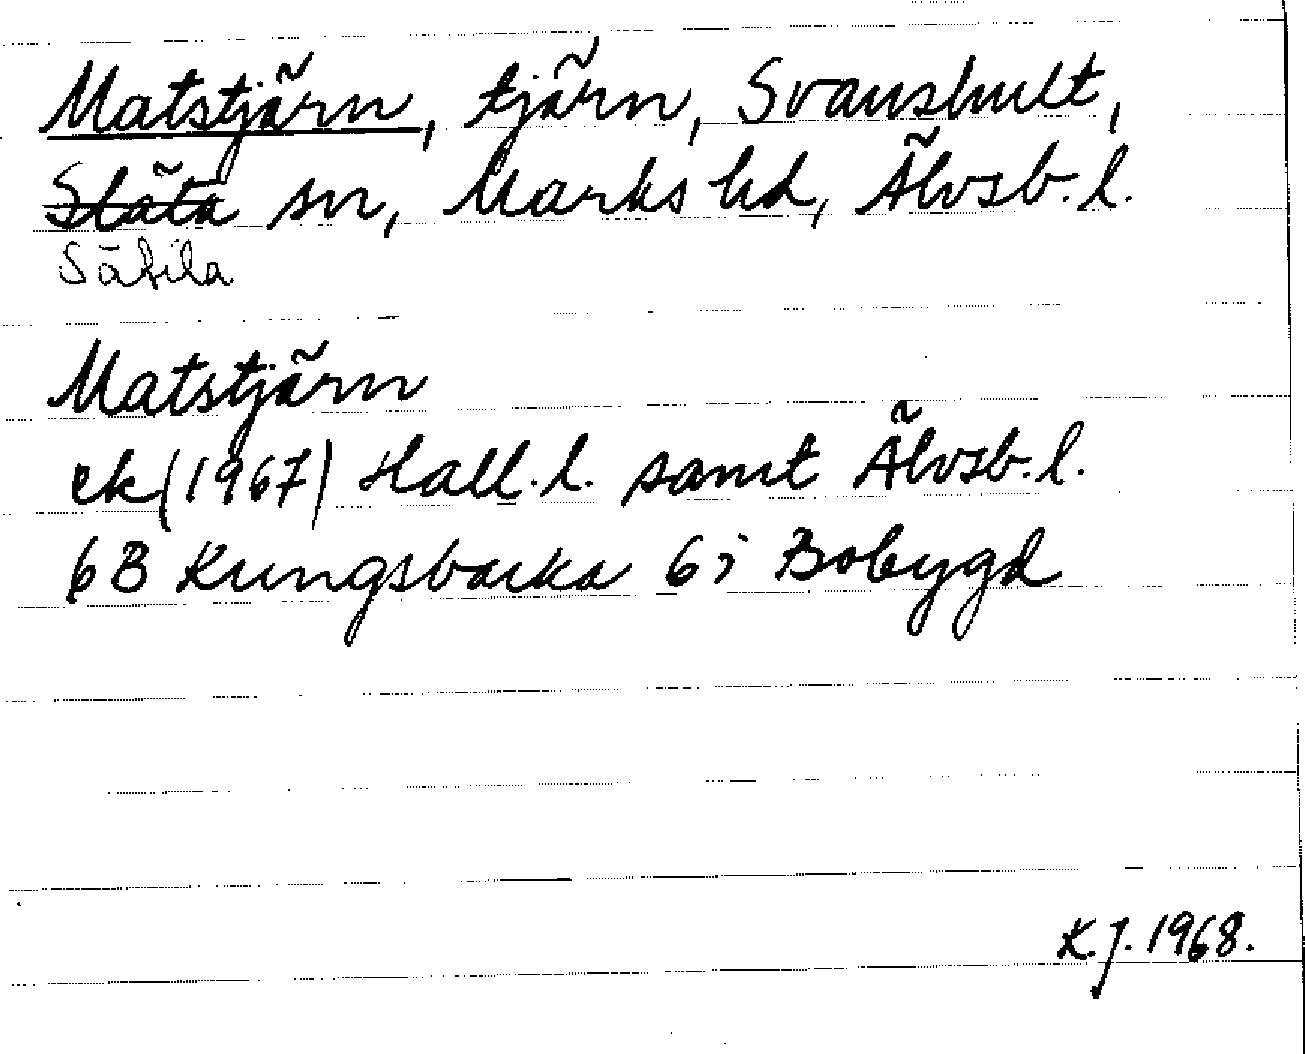 Matstjärn, tjärn, Svanshult,
Släta sn, Marks hd, Älvsb. l.
Sätila
Matstjärn
ek (1967) Hall. l. samt Älvsb. l.
6B Kungsbacka 6i Bobygd
K.J. 1968.